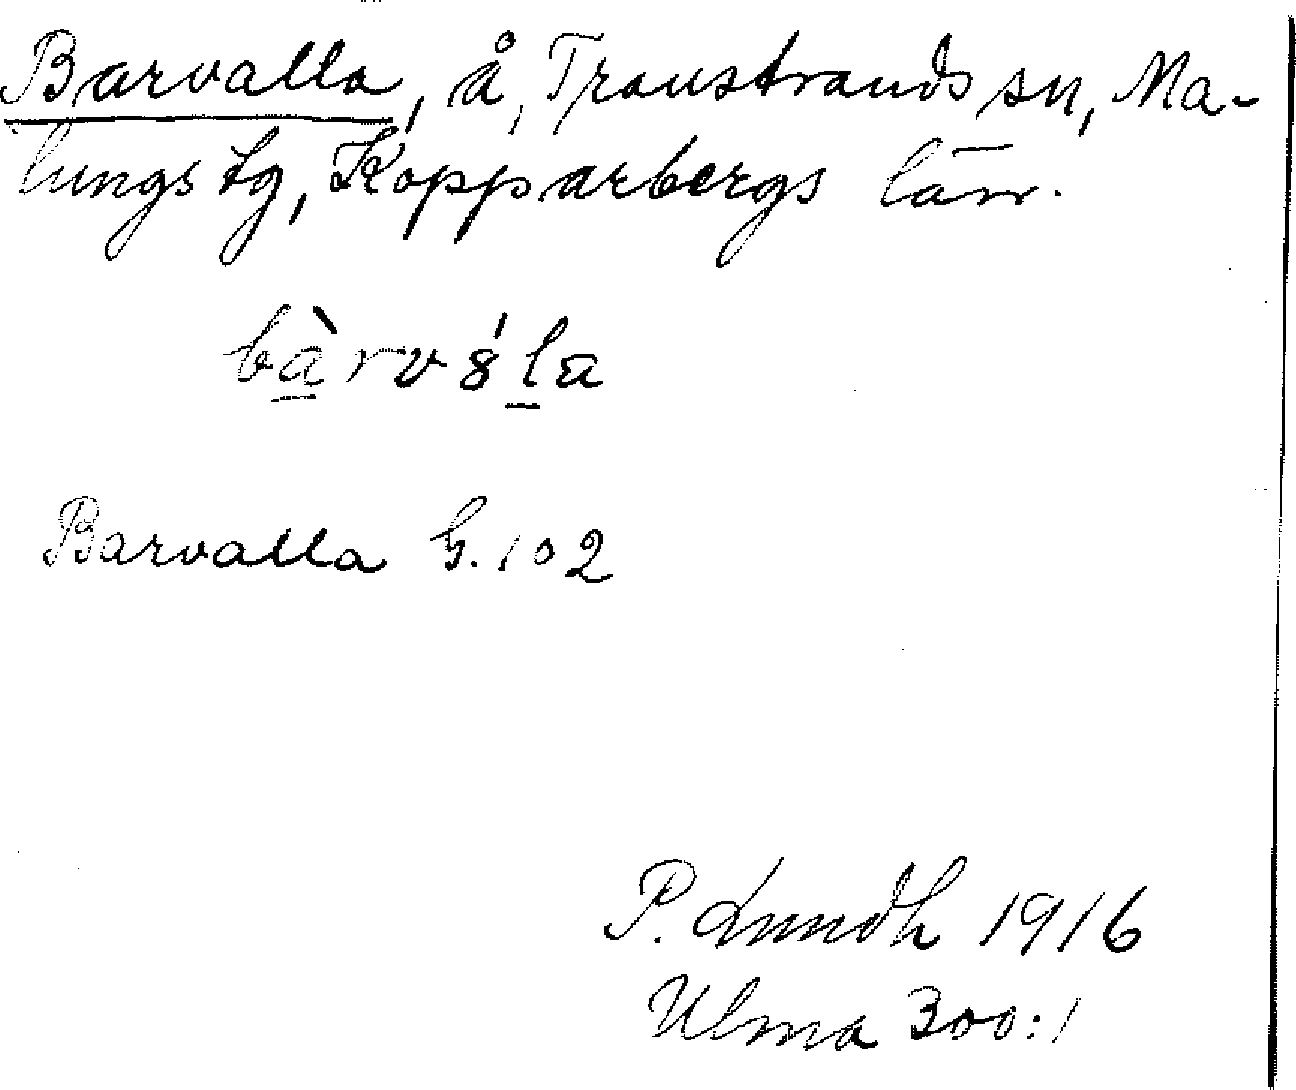 Barvalla, å, Transtrands sn, Ma-
lungs tg, Kopparbergs län.
bàrv8́la
Barvalla G. 102
P. Lundh 1916
Ulma 300:1